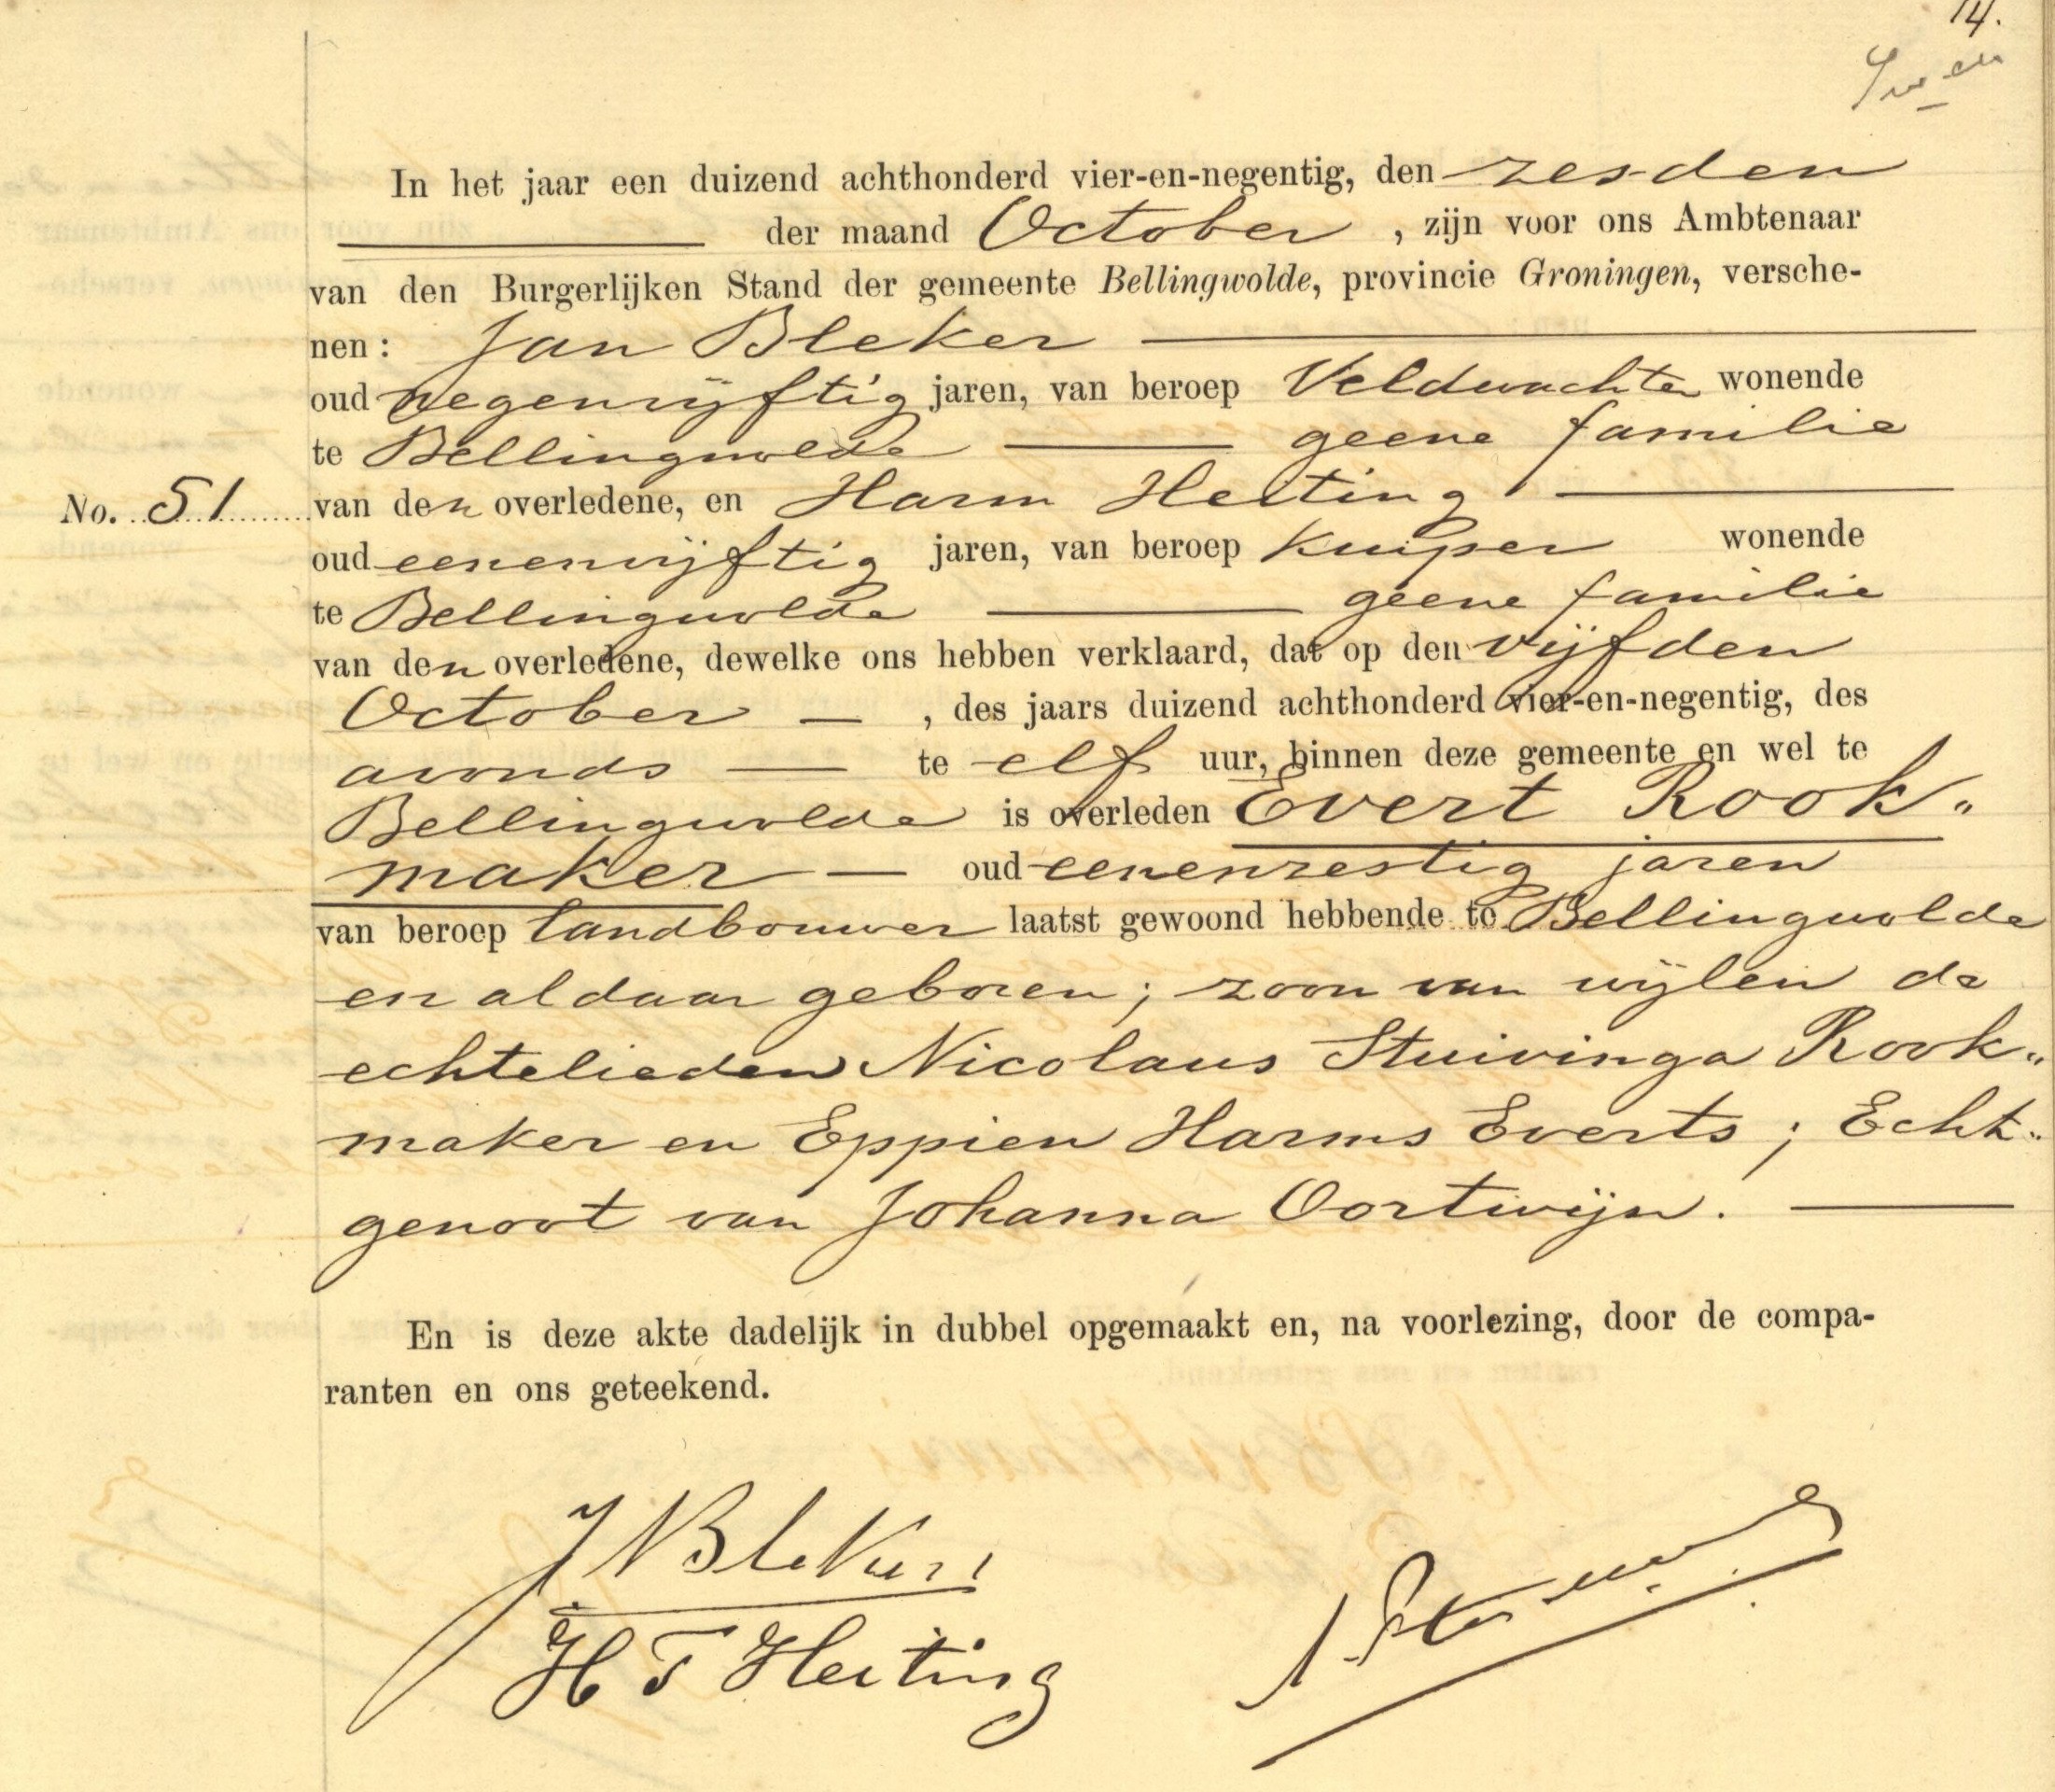 14.
In het jaar een duizend achthonderd vier-en-negentig, den zesden
der maand October , zijn voor ons Ambtenaar
van den Burgerlijken Stand der gemeente Bellingwolde, provincie Groningen, versche-
nen: Jan Bleker
oud negenvijftig jaren, van beroep Veldwachter wonende
te Bellingwolde geene familie
No. 51 van den overledene, en Harm Heiting
oud eenenvijftig jaren, van beroep Kuiper wonende
te Bellingwolde geene familie
van den overledene, dewelke ons hebben verklaard, dat op den vijfden
October , des jaars duizend achthonderd vier-en-negentig, des
avonds te elf uur, binnen deze gemeente en wel te
Bellingwolde is overleden Evert Rook„
maker oud eenenzestig jaren
van beroep landbouwer laatst gewoond hebbende te Bellingwolde
en aldaar geboren; zoon van wijlen de
echtelieden Nicolaus Stuivinga Rook„
maker en Eppien Harms Everts; Echt„
genoot van Johanna Oortwijn.
En is deze akte dadelijk in dubbel opgemaakt en, na voorlezing, door de compa-
ranten en ons geteekend.
J Bleker
H T Heiting